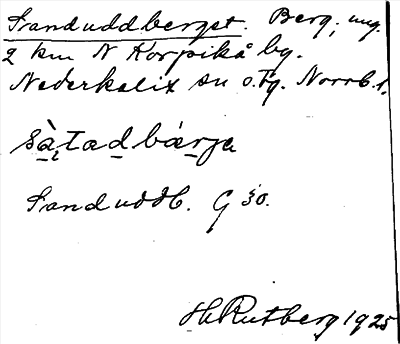 Sanduddberget. Berg, ung.
2 km N Korpikå by.
Nederkalix sn o. tg. Norrb. l.
Sanduddb. G 30.
H Rutberg 1925